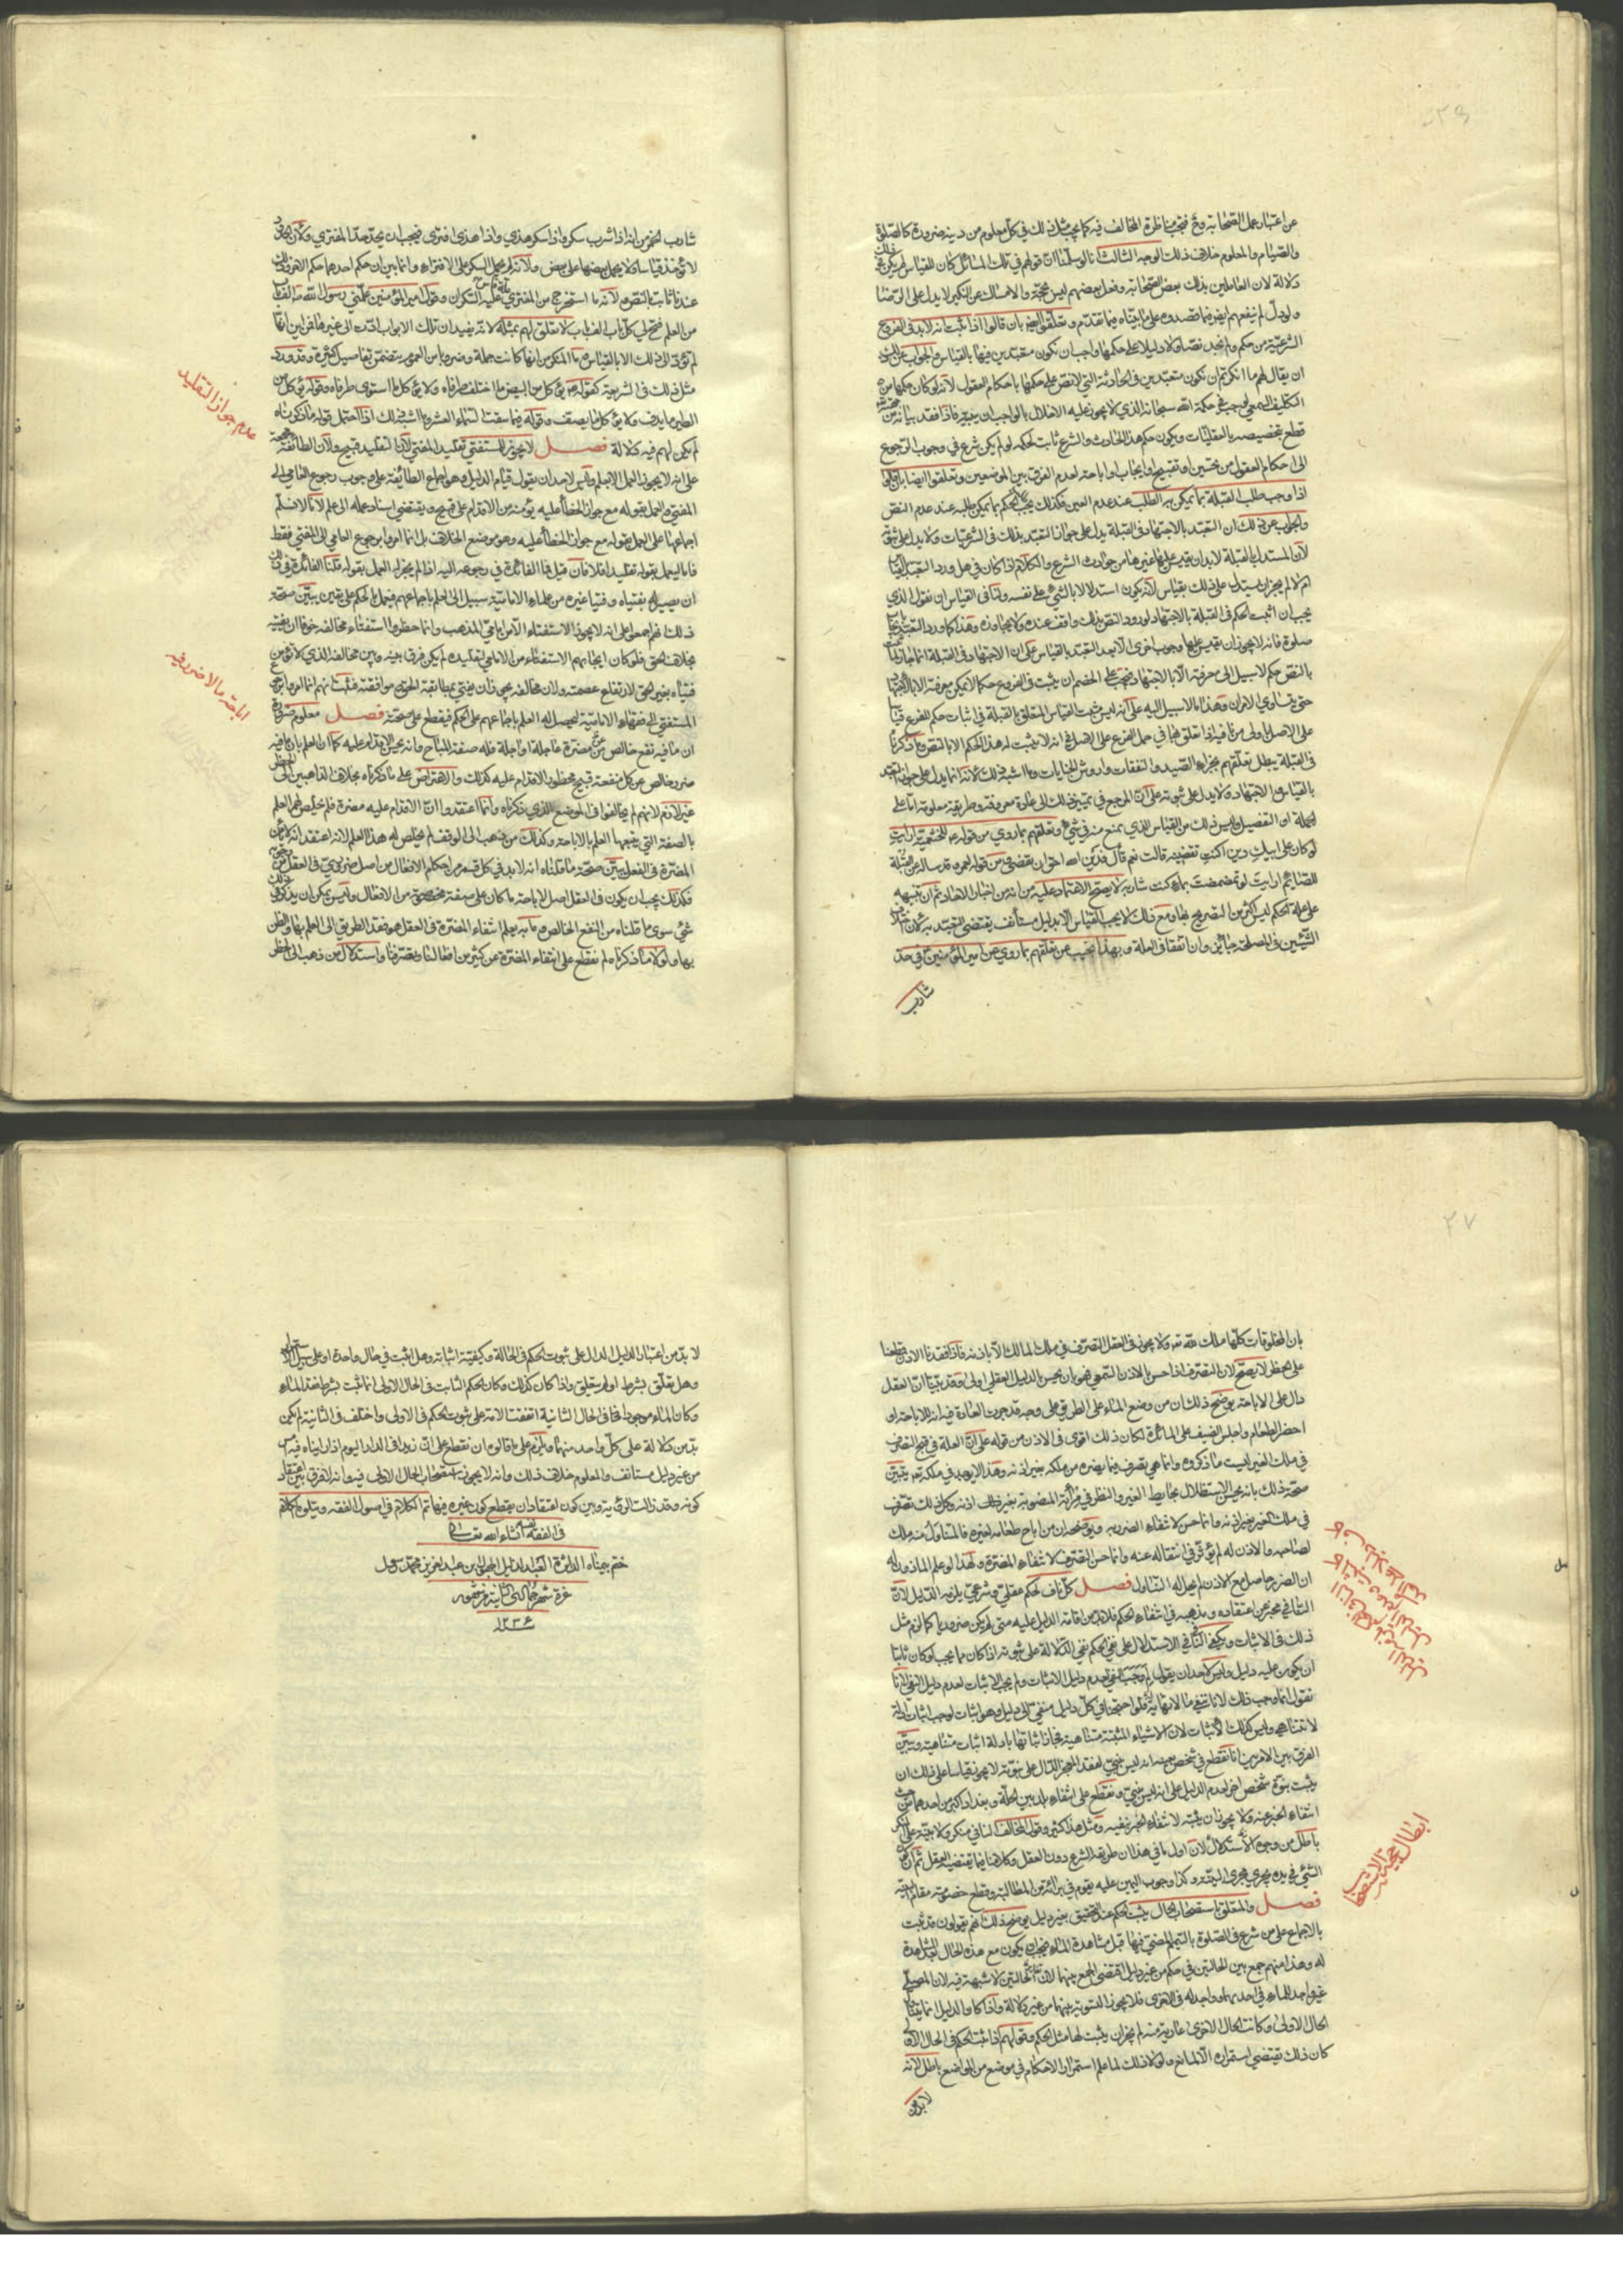 عن اعتبار عمل الصحابة وح فيجب مناظرة المخالف فيه كما يجب مثل ذلك في كل معلوم من دينه ضرورة كالصلوة
والصيام والمعلوم خلاف ذلك الوجه الثالث انا لو سلمنا ان قولهم في تلك المسائل كان للقياس لم يكن فيه
دلالة لان العاملين بذلك بعض الصحابة وفعل بعضهم ليس بحجة والامساك عن النكير لا يدل على الرضا
ولو دل لم ينفعهم
الشرعية من حكم ولم نجد نصا ولا دليلا على حكمها واجب ان نكون متعبدين فيها بالقياس والجواب عن ذلك
ان يقال لهم ما انكرتم ان نكون متعبدين في الحادثة التي لا نص على حكمها باحكام العقول لانه لو كان حكمها من
التكليف السمعي لوجب في حكمة الله سبحانه الذي لا يجوز عليه الاخلال بالواجب ان يبينه فاذا فقد بيانه من
قطع بتخصيصه بالعقليات ويكون حكم هذا الحادث والشرع ثابت كحكمه لو لم يكن شرع في وجوب الرجوع
الى احكام العقول من تحسين او تقبيح او ايجاب او اباحته لعدم الفرق بين الموضعين وتعلقوا ايضا بان قالوا
اذا وجب طلب القبلة بما يمكن به الطلب عند عدم العين فكذلك يجب طلب الحكم بما يمكن طلبه عند عدم النص
والجواب عن ذلك ان التعبد بالاجتهاد في القبلة يدل على جواز التعبد بذلك في الشرعيات ولا يدل على ثبوته
لان المستدل بالقبلة لا بد ان يقيس عليها غيرها من حوادث الشرع والكلام اذا كان في هل ورد التعبد بالقياس
ام لا لم يجز ان يستدل على ذلك بقياس لانه يكون استدلالا بالشيء على نفسه ولنا في القياس ان نقول الذي
يجب ان اثبت الحكم في القبلة بالاجتهاد لورود النص بذلك واقف عنده ولا يتجاوزه وهذا كما ورد التعبد بايجاب
صلوة فانه لا يجوز ان يقيس عليها وجوب اخرى الا بعد التعبد بالقياس على ان الاجتهاد في القبلة انما جاز لما ثبت
بالنص حكم لا سبيل الى معرفته الا بالاجتهاد فيجب على الخصم ان يثبت في الفروع حكما لا يمكن معرفته الا بالاجتهاد
حتى يتساوى الامران وهذا ما لا سبيل اليه على انه ليس مثبت القياس المتعلق بالقبلة في اثبات حكم الفرع قياسا
على الاصل اولى من نافيه اذا تعلق بها في حمل الفرع على الاصل في انه لا يثبت له هذا الحكم الا بالنص وما ذكرناه
في القبلة يبطل تعلقهم بجزاء الصيد والنفقات واروش الجنايات وما اشبه ذلك لانه انما يدل على جواز التعبد
بالقياس والاجتهاد ولا يدل على ثبوته على ان المرجع في تمييز ذلك الى عادة معروفة وطريقة معلومة اما على
الجملة او التفصيل وليس ذلك من القياس الذي يمنع منه في شيء وتعلقهم بما روي من قوله عم للخثعمية ارايت
لو كان على ابيك دين اكنت تقضينه قالت نعم قال فدين الله احق ان يقضى ومن قوله لعمر وقد ساله عن القبلة
للصائم ارايت لو تمضمضت بماء اكنت شاربه لا يصح الاعتماد عليه من انه من اخبار الاحاد ثم ان تنبيهه
على علة الحكم ليس اكثر من التصريح بها ومع ذلك لا يجب القياس الا بدليل مستأنف يقتضي التعبد به لان اختلاف
الشيئين في المصلحة جائز وان اتفقا في العلة وبهذا نجيب عن تعلقهم بما روي عن امير المؤمنين ع في حد
شارب
شارب الخمر من انه اذا شرب سكر واذا سكر هذى واذا هذى افترى فيجب ان يحد حد المفتري ولان الحدود
لا تؤخذ قياسا ولا يحمل بعضها على بعض ولانه لم يحمل السكر على الافتراء وانما بين ان حكم احدهما حكم الاخر وذلك
عندنا ثابت بالنص ولانه ما استخرج من المفتري علة قاس عليه السكران وقول امير المؤمنين علمني رسول الله ص الف باب
من العلم فتح لي كل باب الف باب لا تعلق لهم بمثله لانه يفيد ان تلك الابواب ادت الى غيرها فمن اين انها
لم تؤد الى ذلك الا بالقياس وما المنكر من انها كانت جملة وضروبا من العموم يتضمن تفاصيل كثيرة وقد ورد
مثل ذلك في الشريعة كقوله يؤكل من البيض ما اختلف طرفاه ولا يؤكل ما استوى طرفاه وقوله يؤكل من
الطير ما يدف ولا يؤكل ما يصف وقوله فيما سقت السماء العشر وما اشبه ذلك اذا احتمل قوله ما ذكرناه
لم يكن لهم فيه دلالة فصل لا يجوز للمستفتي تقليد المفتي لان التقليد قبيح ولان الطائفة مجمعة
على انه لا يجوز العمل الا بعلم وليس لاحد ان يقول قيام الدليل وهو اجماع الطائفة على وجوب رجوع العامي الى
المفتي والعمل بقوله مع جواز الخطأ عليه يؤمنه من الاقدام على قبيح ويقتضي اسناد عمله الى علم لانا لا نسلم
اجماعها على العمل بقوله مع جواز الخطأ عليه وهو موضع الخلاف بل انما امروا برجوع العامي الى المفتي فقط
فاما العمل بقوله تقليدا فلا فان قيل فما الفائدة في رجوعه اليه اذا لم يجز له العمل بقوله قلنا الفائدة في ذلك
ان يصير له بفتياه وفتيا غيره من علماء الامامية سبيل الى العلم باجماعهم فيعمل بالحكم على يقين يبين صحة
ذلك انهم اجمعوا على انه لا يجوز الاستفتاء الا من امامي المذهب وانما حظروا استفتاء مخالفه خوفا ان يفتيه
بخلاف الحق فلو كان ايجابهم الاستفتاء من الامامي لتقليده لم يكن فرق بينه وبين مخالفه الذي لا نؤمن
فتياه بغير الحق لارتفاع عصمته ولان مخالفه يجوز ان يفتي بمطابقة الحق وموافقته فثبت انهم انما امروا برجوع
المستفتي الى فقهاء الامامية ليحصل له العلم باجماعهم على الحكم فيقطع على صحته فصل معلوم ضرورة
ان ما فيه نفع خالص من مضرة عاجلة او اجلة فله صفة المباح وانه يحسن الاقدام عليه كما ان العلم بان ما فيه
ضرر خالص عن كل منفعة قبيح محظور الاقدام عليه كذلك والاعتراض على ما ذكرناه بخلاف الذاهبين الى الحظر
غير لازم لانهم لم يخالفوا في الموضع الذي ذكرناه وانما اعتقدوا ان الاقدام عليه مضرة فلم يخلص لهم العلم
بالصفة التي يتبعها العلم بالاباحة وكذلك من ذهب الى الوقف لم يخلص له هذا العلم لانه اعتقد انه لا يأمن
المضرة في الفعل يبين صحة ما قلناه انه لا بد في كل قسم من احكام الافعال من اصل ضروري في العقل
فكذلك يجب ان يكون في العقل اصل الاباحة ما كان على صفة مخصوصة من الافعال وليس يمكن ان يذكر في ذلك
شيء سوى ما قلناه من النفع الخالص وما به يعلم انتفاء المضرة في العقل هو فقد الطريق الى العلم بها والظن
بها ولولا ما ذكرناه لم نقطع على انتفاء المضرة عن كثير من افعالنا وتصرفنا واستدلال من ذهب الى الحظر
عدم جواز التقليد
اباحة ما لا ضرر فيه
٢٧
بان المخلوقات كلها ملك لله تعالى ولا يجوز في العقل التصرف في ملك المالك الا باذنه فاذا فقدنا الاذن قطعنا
على الحظر لا يصح لان التصرف اذا حسن بالاذن السمعي فهو بان يحسن بالدليل العقلي اولى وقد بينا ان العقل
دال على الاباحة يوضح ذلك ان من وضع الماء على الطريق على وجه قد جرت العادة فيه انه للاباحة او
احضر الطعام واجلس الضيف على المائدة لكان ذلك اقوى في الاذن من قوله على ان العلة في قبح التصرف
في ملك الغير ليست ما ذكروه وانما هي تصرف فيما يضره من ملكه بغير اذنه وهذا لا يوجد في ملكه تعالى يبين
صحة ذلك بانه يحسن الاستظلال بحايط الغير والنظر في مرآته المنصوبة بغير اذنه وكل ذلك تصرف
في ملك الغير بغير اذنه وانما حسن لانتفاء الضرر به ويوضحه ان من اباح طعامه لغيره فالمتناول منه ملك
لصاحبه والاذن له لم يؤثر في انتقاله عنه وانما حسن التصرف لانتفاء المضرة ولهذا لو علم الماذون له
ان الضرر حاصل مع الاذن لم يحل له التناول فصل كل ناف لحكم عقلي وشرعي يلزمه الدليل لان
النافي مخبر عن اعتقاده ومذهبه في انتفاء الحكم فلا بد من اقامة الدليل عليه متى لم يكن ضروريا كما لزم مثل
ذلك في الاثبات ويكفي النافي الاستدلال على نفي الحكم نفي الدلالة على ثبوته اذا كان مما يجب لو كان ثابتا
ان يكون عليه دليل وليس لاحد ان يقول لم وجب النفي لعدم دليل الاثبات ولم يجب الاثبات لعدم دليل النفي لانا
نقول انما وجب ذلك لانا ننفي ما لا نهاية له فلو احتجنا في كل دليل منفي الى دليل وهو اثبات لوجب اثبات ادلة
لا تتناهى وليس كذلك الاثبات لان الاشياء المثبتة متناهية فجاز اثباتها بادلة اثبات متناهية ويبين
الفرق بين الامرين انا نقطع في شخص بعينه انه ليس بنبي لفقد المعجز الدال على نبوته لا يجوز قياسا على ذلك ان
يثبت نبوة شخص اخر لعدم الدليل على انه ليس بنبي ونقطع على انتفاء بلد بين الحلة وبغداد اكبر من احدهما من حيث
انتفاء الخبر عنه ولا يجوز ان يثبته لانتفاء الخبر بنفيه ومثل هذا كثير وقول المخالف النافي منكر ولا بينة على المنكر
باطل من وجوه الاستدلال لان اول ما في هذا ان طريقه الشرع دون العقل وكلامنا فيما يقتضيه العقل ثم ان كون
الشيء في يده يجري مجرى البينة وكذا وجوب اليمين عليه يقوم في براءته من المطالبة وقطع خصومته مقام البينة
فصل والمتعلق باستصحاب الحال يثبت الحكم عند التحقيق بغير دليل يوضح ذلك انهم يقولون قد ثبت
بالاجماع على من شرع في الصلوة بالتيمم المضي فيها قبل مشاهدة الماء فيجب ان يكون مع هذه الحال المشاهدة
له وهذا منهم جمع بين الحالتين في حكم من غير دليل اقتضى الجمع بينهما لان الحالتين لا شبهة فيه لان المصلي
غير واجد للماء في احدهما وواجد له في الاخرى فلا يجوز التسوية بينهما من غير دلالة واذا كان الدليل انما يتناول
الحال الاولى وكانت الحال الاخرى عارية منه لم يجز ان يثبت لها مثل الحكم وقولهم اذا ثبت الحكم في الحال الاولى
كان ذلك يقتضي استمراره الا لمانع ولولا ذلك لما علم استمرار الاحكام في موضع من المواضع باطل لانه
لا بد من
ابطال حجية الاستصحاب
لا بد من اعتبار الدليل الدال على ثبوت الحكم في الحالة وكيفية اثباته وهل اثبت في حال واحدة او على سبيل الاستمرار
وهل تعلق بشرط او لم يتعلق واذا كان كذلك وكان الحكم الثابت في الحال الاولى انما ثبت بشرط فقد الماء
وكان الماء موجودا في الحال الثانية اتفقت الامة على ثبوت الحكم في الاولى واختلف في الثانية لم يكن
بد من دلالة على كل واحد منهما ويلزم على ما قالوه ان نقطع على ان زيدا في الدار اليوم اذا رايناه فيه امس
من غير دليل مستانف والمعلوم خلاف ذلك وانه لا يجوز باستصحاب الحال الاولى فيه وانه لا فرق بين اعتقاد
كونه وقد زالت الرؤية وبين كون اعتقاد ان يقطع كون غيره فيها تم الكلام في اصول الفقه ويتلوه الكلام
في الفقه نفسه انشاء الله تعالى
ختم بيمناه الداثرة العبد الذليل ابن عبد العزيز محمد رسول
غرة شهر جمادى الثانية من شهور
سنة ١٢٣٤